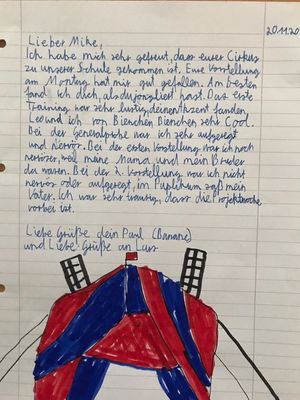 20.11.20
Lieber Mike,
Ich habe mich sehr gefreut, dass eurer Cirkus
zu unserer Schule gekommen ist. Eure Vorstellung
am Montag hat mir gut gefallen. Am besten
fand ich dich, als du jongliert hast. Das erste
Training war sehr lustig, deinen fanden
Leo und ich von Bienchen Bienchen sehr Cool.
Bei der Generalprobe war ich sehr aufgeregt
und nervör. Bei der ersten Vorstellung war ich noch
nervöser, weil meine Mama und mein Bruder
da waren. Bei der 2. Vorstellung war ich nicht
nervös oder aufgeregt, im Puplikum saß mein
Vater. Ich war sehr traurig, dass die Projektwoche
vorbei ist.
Liebe Grüße dein Paul (Banane)
und Liebe Grüße an Lars